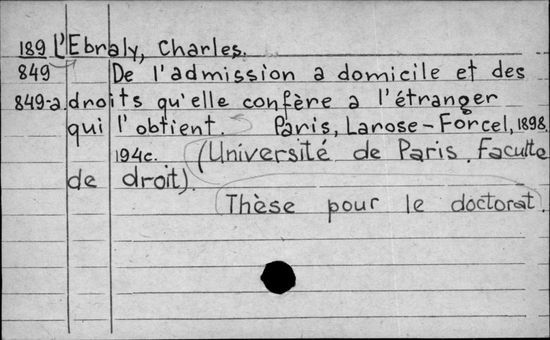 189 L'Ebraly, Charles.
849 De l'admission a domicile et des
849-a droits qu'elle confère a l'étranger
qui l'obtient. Paris, Larose-Forcel, 1898.
194c. (Université de Paris. Faculte
de droit).
Thèse pour le doctorat.